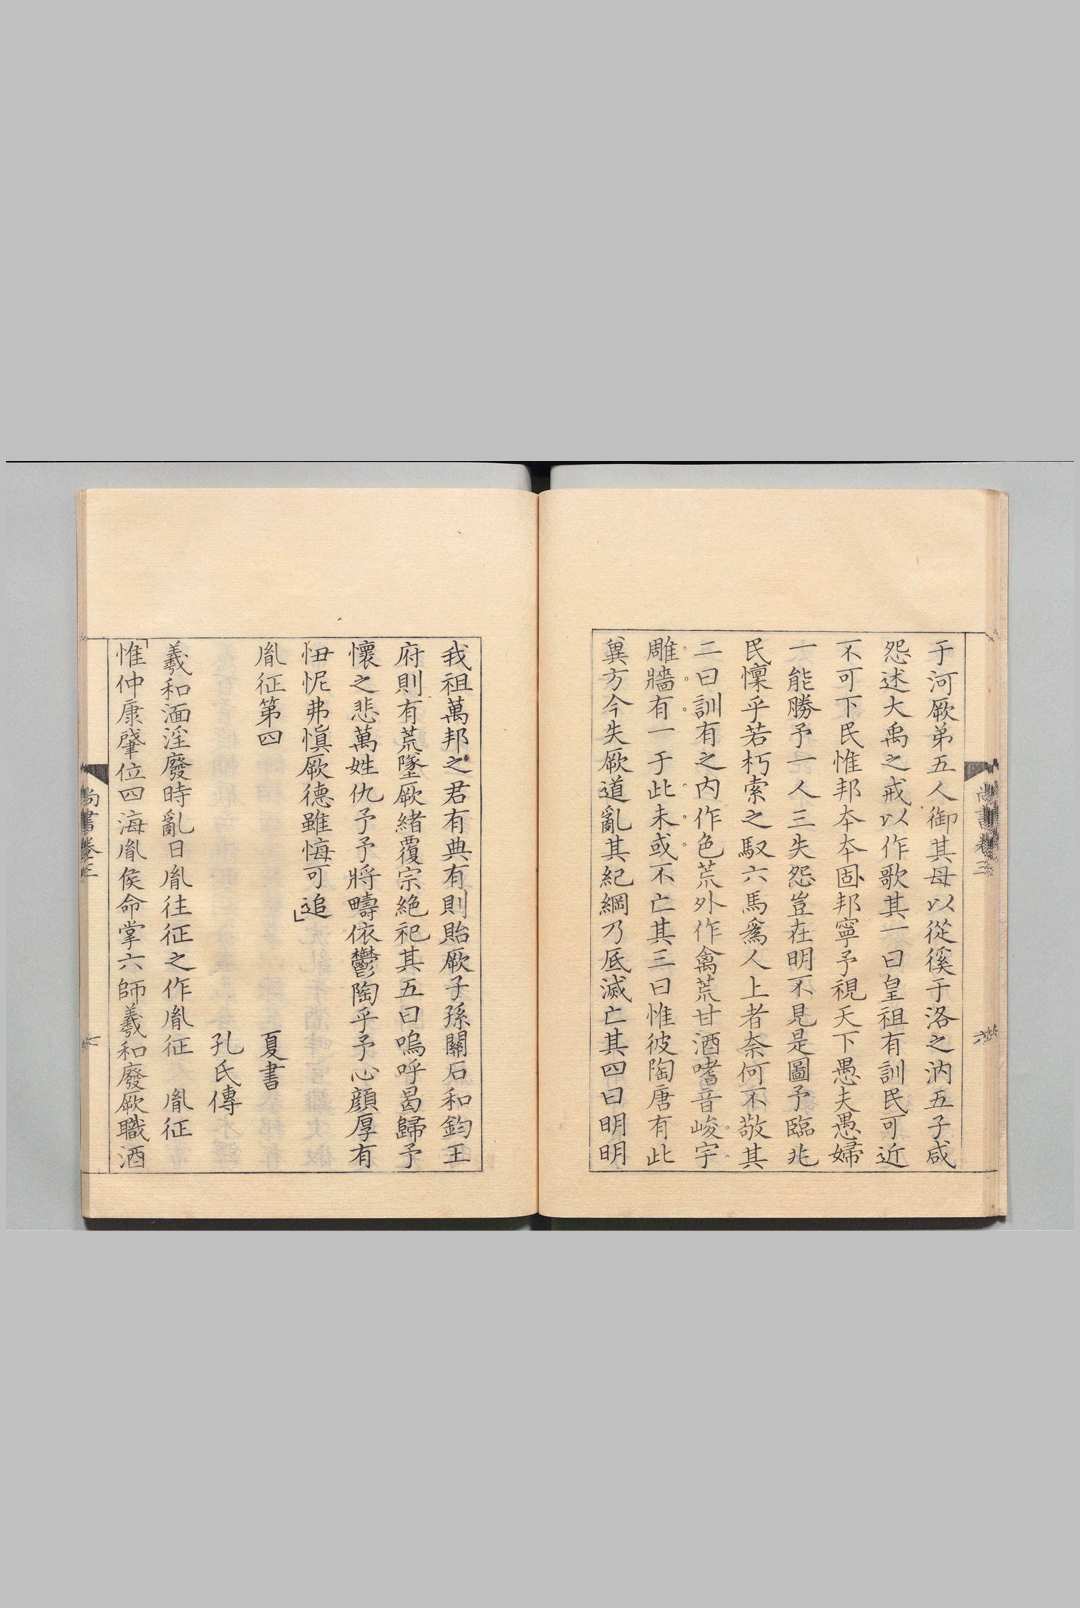 于河厥弟五人御其母以從徯于洛之汭五子咸
怨述大禹之戒以作歌其一曰皇祖有訓民可近
不可下民惟邦本本固邦寧予視天下愚夫愚婦
一能勝予一人三失怨豈在明不見是圖予臨兆
民懍乎若朽索之馭六馬爲人上者奈何不敬其
二曰訓有之內作色荒外作禽荒甘酒嗜音峻宇
雕牆有一于此未或不亡其三曰惟彼陶唐有此
冀方今失厥道亂其紀綱乃厎滅亡其四曰明明
我祖萬邦之君有典有則貽厥子孫關石和鈞王
府則有荒墜厥緒覆宗絕祀其五曰嗚呼曷歸予
懷之悲萬姓仇予予將疇依鬱陶乎予心顔厚有
忸怩弗愼厥德雖悔可追
胤征第四 夏書
孔氏傳
羲和湎淫廢時亂日胤往征之作胤征 胤征
惟仲康肇位四海胤侯命掌六師羲和廢厥職酒
尚書卷三